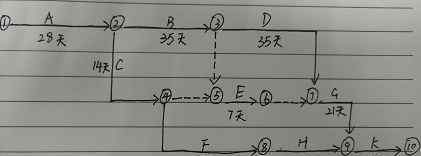 ① A ② B ③ D
28天 35天 35天
14天 C
④ ⑤ E ⑥ ⑦ G
7天 21天
F ⑧ H ⑨ K ⑩